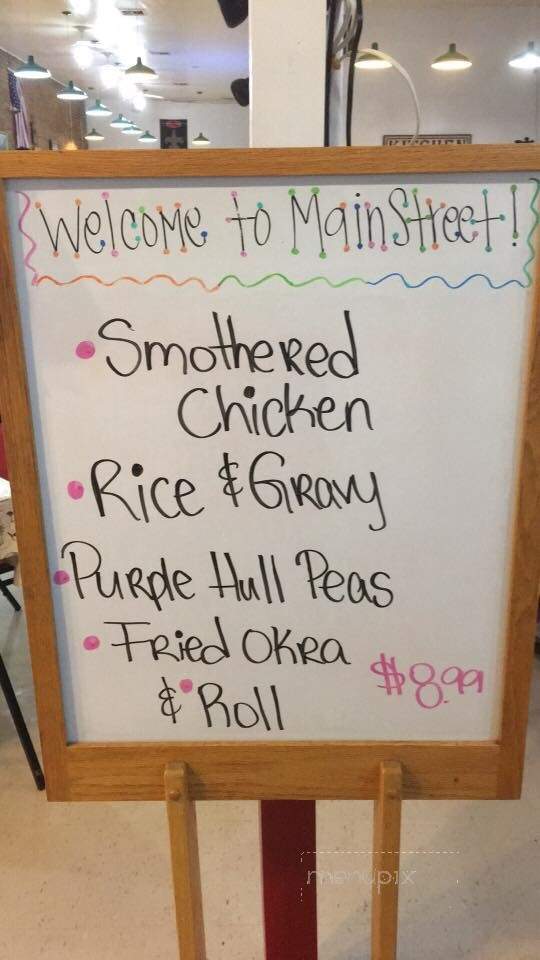 KITCHEN
Welcome to MainStreet!
• Smothered
Chicken
• Rice & Gravy
• Purple Hull Peas
• Fried Okra
& • Roll
$8.99
menupix